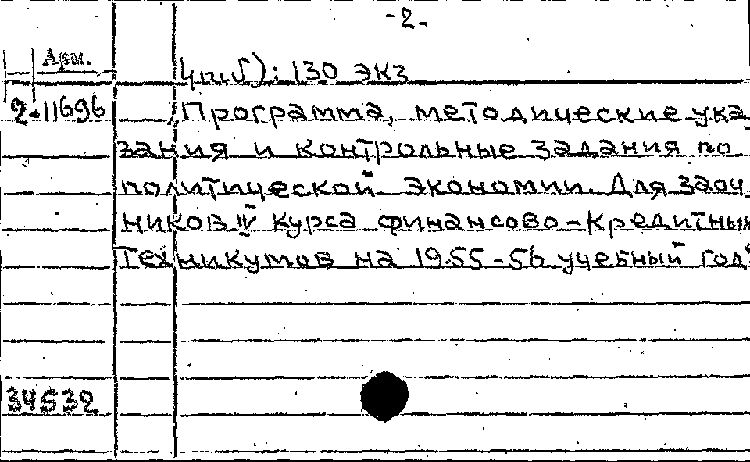 -2.
Арм.
): 130 экз
2-11696 Программа, методические ука
зания и контрольные задания по
политической экономии. Для заоч
ников IV курса финансово-кредитных
техникумов на 1955-56 учебный год
34532